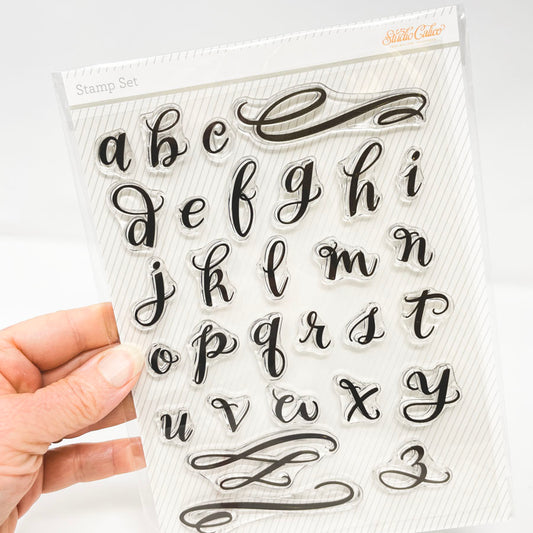 Studio Calico
Stamp Set
a b c
d e f g h i
j k l m n
o p q r s t
u v w x y
z